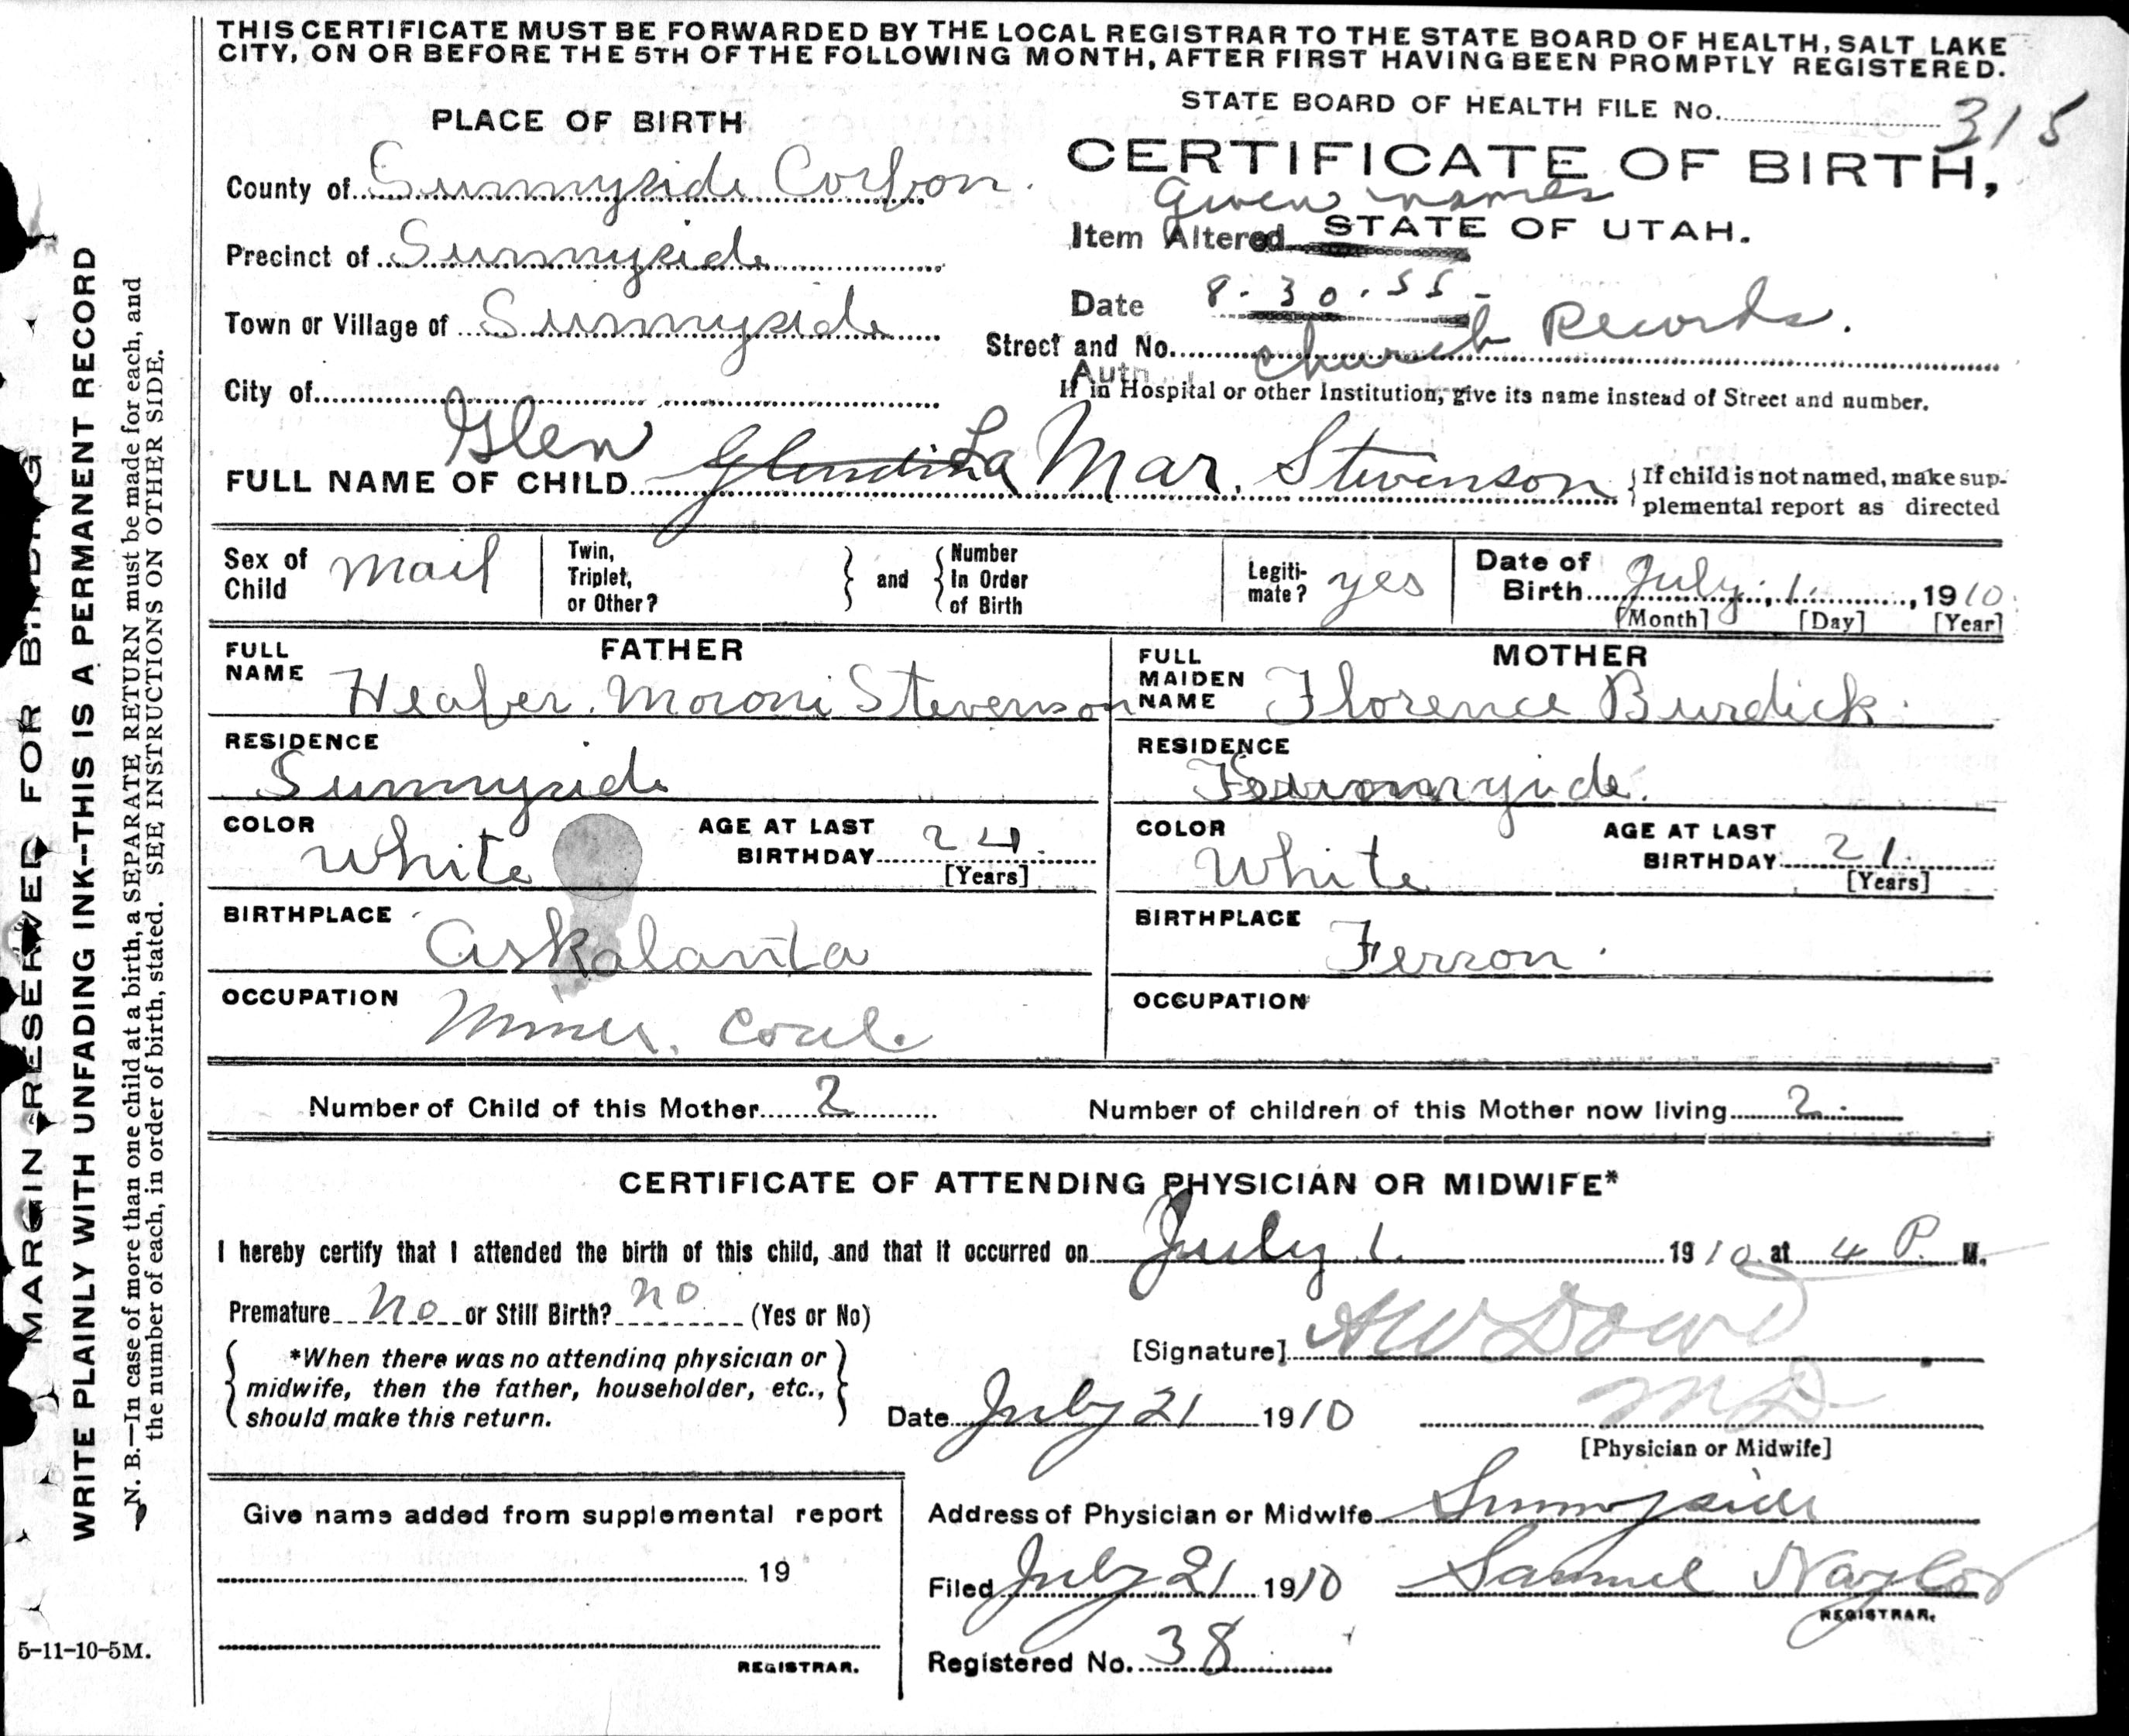 THIS CERTIFICATE MUST BE FORWARDED BY THE LOCAL REGISTRAR TO THE STATE BOARD OF HEALTH, SALT LAKE
CITY, ON OR BEFORE THE 5TH OF THE FOLLOWING MONTH, AFTER FIRST HAVING BEEN PROMPTLY REGISTERED.
STATE BOARD OF HEALTH FILE No. 315
PLACE OF BIRTH
CERTIFICATE OF BIRTH,
County of Sunnyside Corbon.
Given names
Item Altered STATE OF UTAH.
Precinct of Sunnyside
Date 8-30-55-
Town or Village of Sunnyside
Street and No. church Records.
Auth
City of
If in Hospital or other Institution, give its name instead of Street and number.
Glen
FULL NAME OF CHILD La Mar. Stevenson
If child is not named, make sup-
plemental report as directed
Sex of Child mail
Twin, Triplet, or Other?
and
Number In Order of Birth
Legiti-mate? yes
Date of Birth July, 1, 1910
[Month] [Day] [Year]
FATHER
FULL NAME Heaber. Moroni Stevenson
RESIDENCE
Sunnyside
COLOR White
AGE AT LAST BIRTHDAY 24.
[Years]
BIRTHPLACE Askalanta
OCCUPATION Miner. Coal.
MOTHER
FULL MAIDEN NAME Florence Burdick.
RESIDENCE
COLOR White
AGE AT LAST BIRTHDAY 21.
[Years]
BIRTHPLACE Ferron.
OCCUPATION
Number of Child of this Mother 2
Number of children of this Mother now living 2.
CERTIFICATE OF ATTENDING PHYSICIAN OR MIDWIFE*
I hereby certify that I attended the birth of this child, and that it occurred on July 1. 1910 at 4 P. M.
Premature no or Still Birth? no (Yes or No)
[Signature] AW Dowd
*When there was no attending physician or
midwife, then the father, householder, etc.,
should make this return.
Date July 21 1910
MD
[Physician or Midwife]
Give name added from supplemental report
19
REGISTRAR.
Address of Physician or Midwife Sunnyside
Filed July 21 1910 Samuel Naylor
REGISTRAR.
Registered No. 38
MARGIN RESERVED FOR BINDING
WRITE PLAINLY WITH UNFADING INK--THIS IS A PERMANENT RECORD
N. B.—In case of more than one child at a birth, a SEPARATE RETURN must be made for each, and
the number of each, in order of birth, stated. SEE INSTRUCTIONS ON OTHER SIDE.
5-11-10-5M.